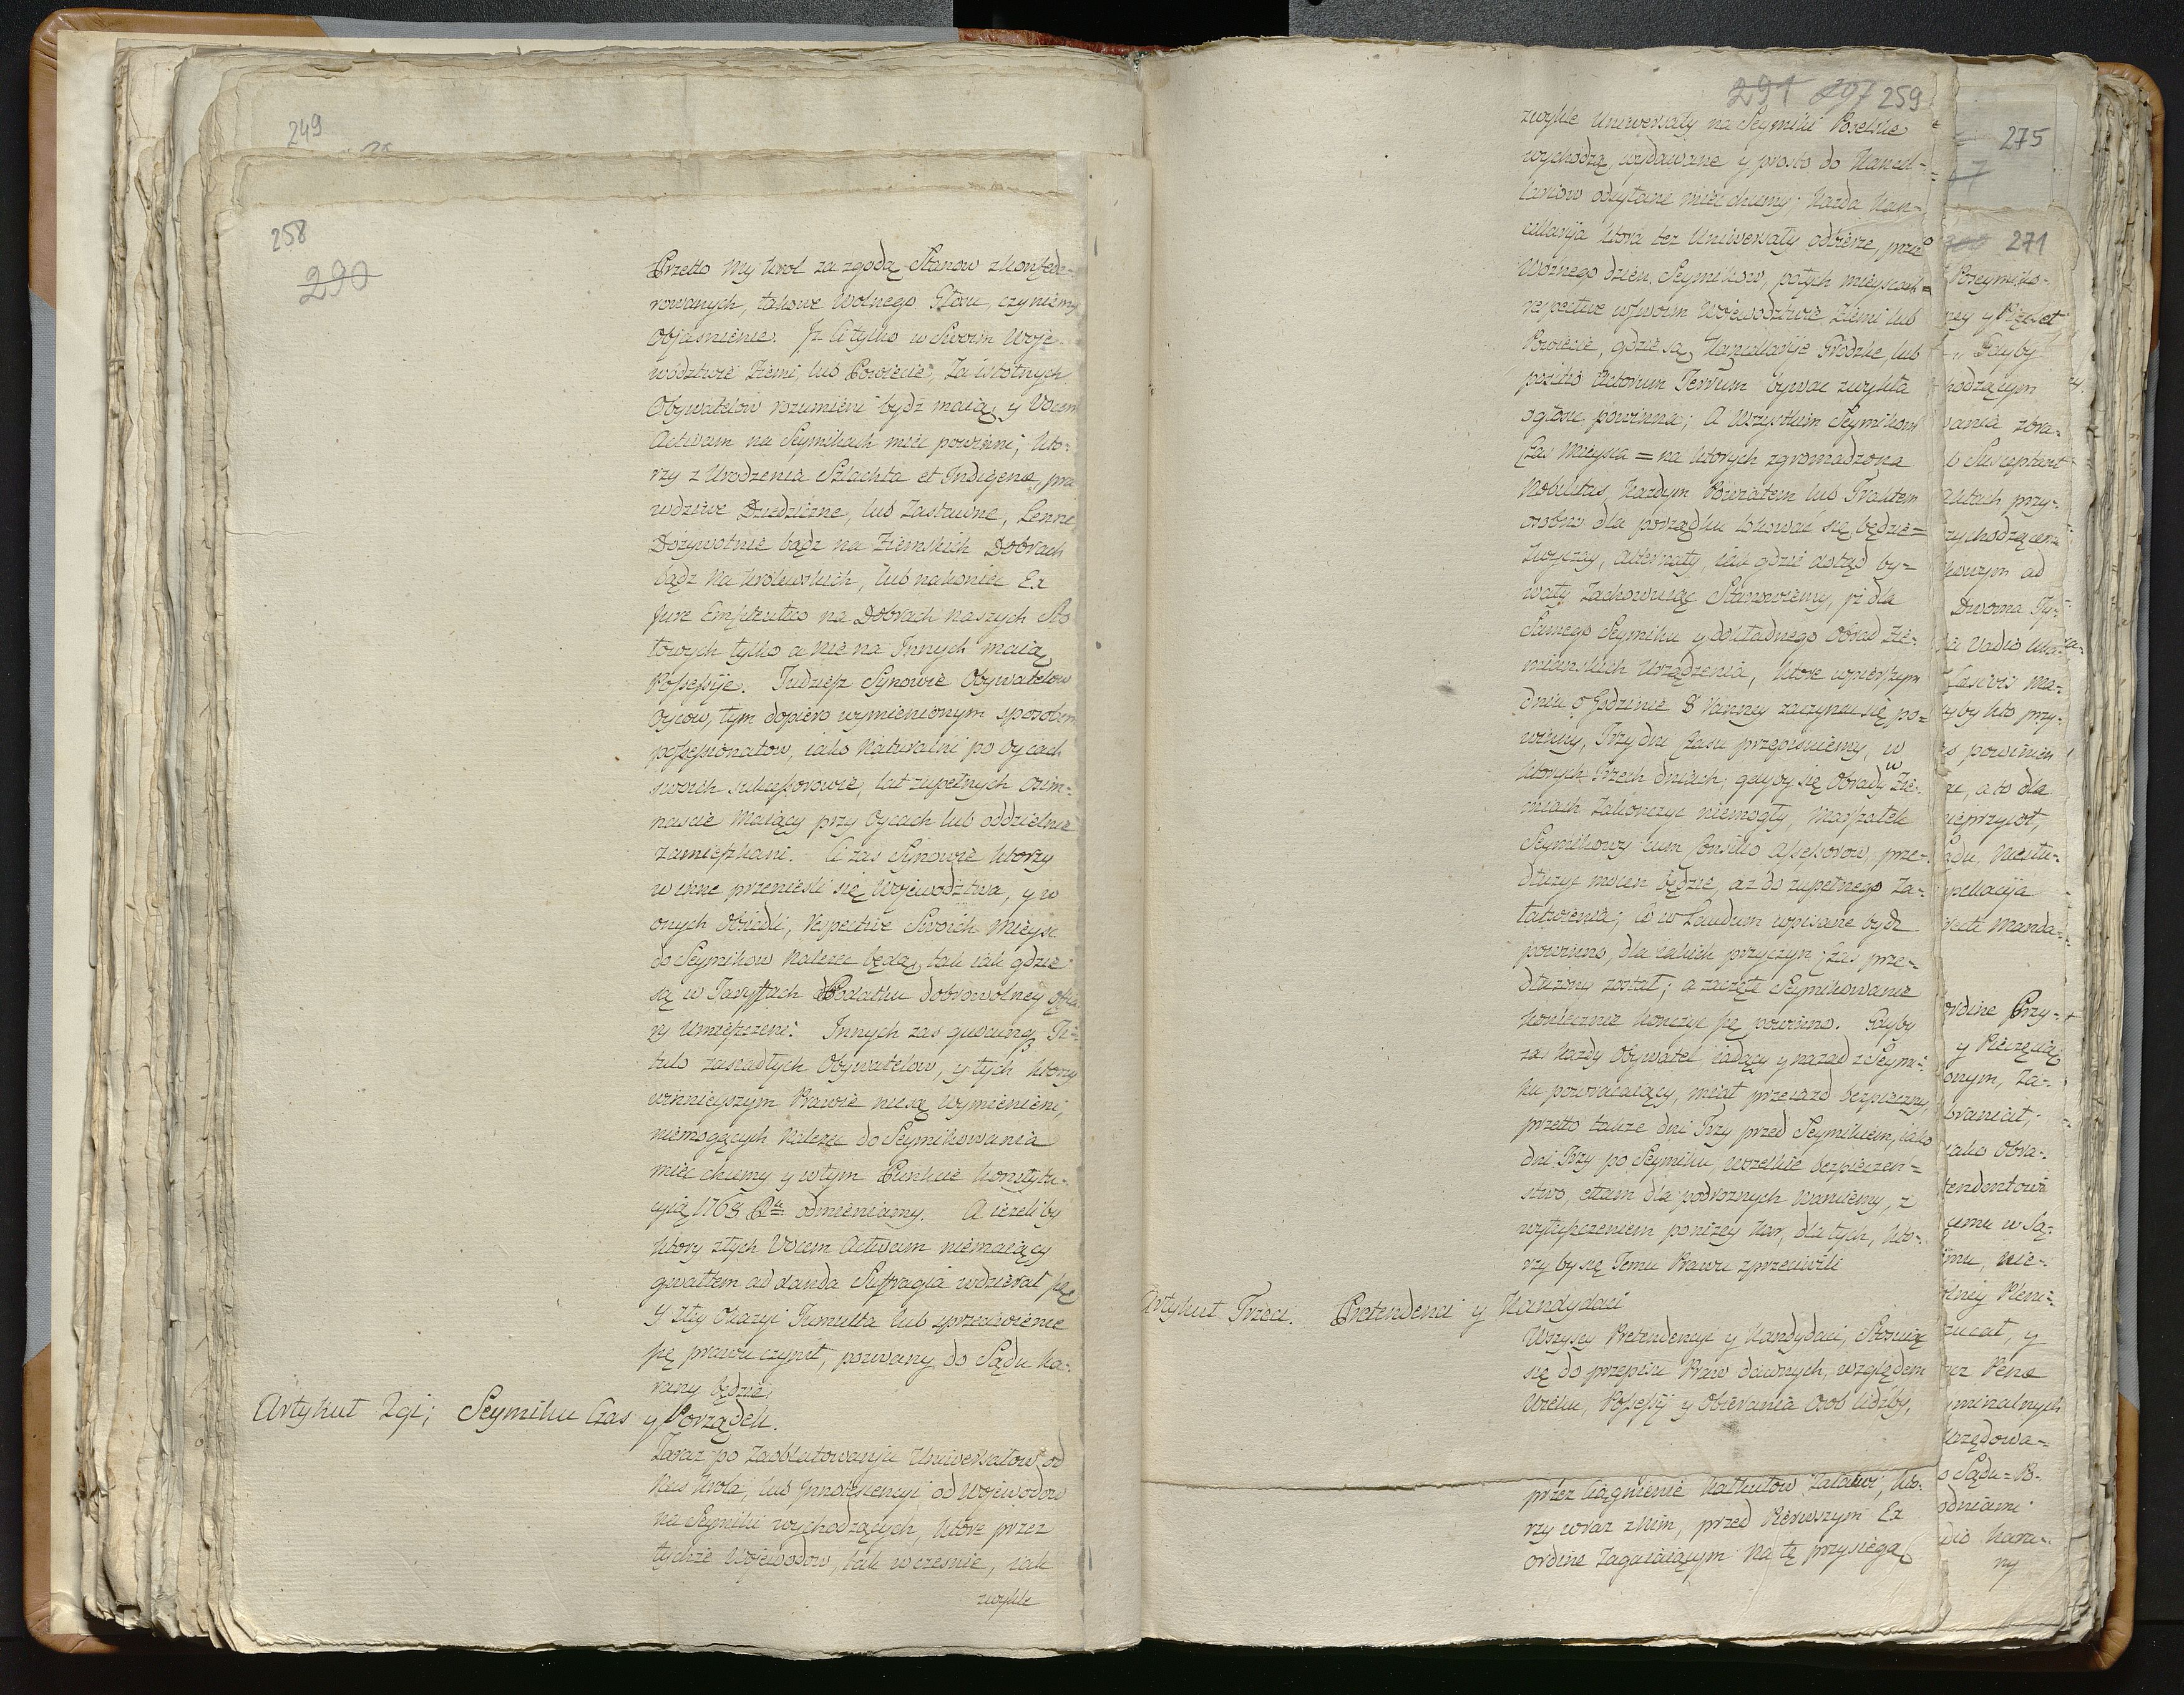 249
258
290
Przetto My Krol za zgodą Stanow zkonfede-
rowanych, takowe Wolnego Głosu, czyniemy
Objasnienie. Jż Ci tylko w Swoim Woje-
wodztwie Ziemi, lub Powiecie, Za istotnych
Obywatelow rozumieni bydz maią, y Vocem
Activam na Seymikach mieć powinni, kto-
rzy z Urodzenia Szlachta et Indigenæ, pra
wdziwe Dziedziczne, lub Zastawne, Lenne
Dożywotnie bądz na Ziemskich Dobrach
bądz na Krolewskich, lub nakoniec Ex
Jure Emphiteutico na Dobrach naszych Sto
łowych tylko a nie na Innych maią
Possessye. Tudziesz Synowie Obywatelow
Oycow, tym dopiero wymienionym sposobem
possessionatow, iako Naturalni po Oycach
swoich sukcessorowie, lat zupełnych osim-
nascie Maiący przy Oycach lub oddzielnie
zamieszkani. Ci zas Synowie ktorzy
w inne przenieśli się Wojewodztwa, y w
onych Osiedli, Respective Swoich Mieysc
do Seymikow Należec będą, tak iak gdzie
są w Taryffach Podatku dobrowolney ofia
ry Umieszczeni. Innych zas quocunq Ti-
tulo zasiadłych Obywatelow, y tych ktorzy
winnieyszym Prawie niesą Wymienieni,
niemogących Należeć do Seymikowania
mieć chcemy y wtym Punkcie konstytu-
cyią 1768 Rku odmieniamy. A ieżeliby
ktory ztych Vocem Activam niemaiący
gwałtem ad danda Suffragia wdzierał się
Y Zty Okazyi Tumulta lub sprzeciwienie
się prawu czynił, pozwany do Sądu ka-
rany będzie.
Artykuł 2gi; Seymiku Czas y Porządek.
Zaraz po Zaoblatowaniu Uniwersałow od
Nas Krola, lub Innotescencyi od Wojewodow
na Seymiki wychodzących, ktore przez
tychże Wojewodow, tak wczesnie, iak
zwykle
291 297 259
zwykle Uniwersały na Seymiki Poselskie
wychodzą, wydawane y prosto do Kancel-
laryiow odsyłane mieć chcemy; każda Kan-
cellaryja ktora tez Uniwersały odbierze, przez
Woznego dzien, Seymikow, potych mieyscach
respective wswoim Wojewodztwie Ziemi lub
Powiecie, gdzie są Kancellaryje Grodzkie, lub
positio Actorum Terrum bywać zwykła
ogłosic powinna; A Wszystkim Seymikom
Czas Mieysca = na ktorych zgromadzona
Nobilitas, każdym Powiatem lub Traktem
osobno dla porządku lokować się będzie =
Zwyczay, alternaty, iak gdzie dotąd by-
wały Zachowuiąc Stanowiemy, jż dla
Samego Seymiku y dokładnego Obrad Zie-
mianskich Urządzenia, ktore wpierszym
dniu o Godzinie 8 Ranney zaczynać się po-
winny, Trzy dni Czasu przepisuiemy, w
ktorych Trzech dniach, gdyby się Obrady w Zie-
miach Zakonczyc niemogły, Marszałek
Seymikowy cum Consilio Assessorow, prze-
dłużyc mocen będzie, az do zupełnego Za-
łatwienia; Co w Laudum wpisane bydz
powinno, dla iakich przyczyn Czas prze-
dłużony został; a zaczęte Seymikowanie
koniecznie konczyc się powinno. Gdyby
zas każdy Obywatel iadący y nazad z Seymi-
ku powracaiący, miał przeiazd bezpieczny,
przetto takze dni Trzy przed Seymikiem, iako
dni Trzy po Seymiku, wszelkie bezpieczen-
stwo, etiam dla podroznych waruiemy, z
wytyszczeniem ponizey kar, dla tych, kto-
rzy by się Temu Prawu sprzeciwili
Artykuł Trzeci. Pretendenci y Kandydaci
Wszyscy Pretendencyi y Kandydaci, Stosuiąc
się do przepisu Praw dawnych, względem
Wieku, Possessyi y Obierania Osob liczby,
przez Ciągnienie Kalkułow Załatwi, kto-
rzy wraz z Nim, przed Pierwszym Ex
ordine Zagaiaiącym Na tę przysięgę
275
271